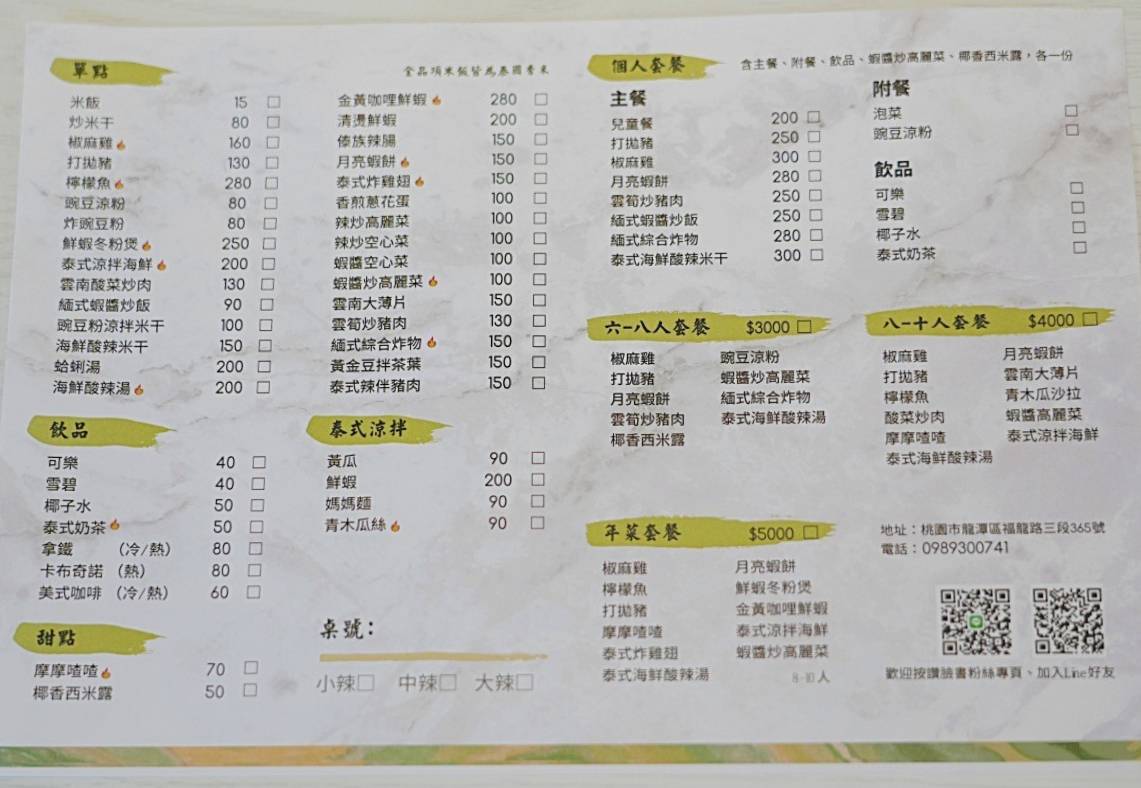 單點
全品項米飯皆為泰國香米
米飯 15 □
炒米干 80 □
椒麻雞 160 □
打拋豬 130 □
檸檬魚 280 □
豌豆涼粉 80 □
炸豌豆粉 80 □
鮮蝦冬粉煲 250 □
泰式涼拌海鮮 200 □
雲南酸菜炒肉 130 □
緬式蝦醬炒飯 90 □
豌豆粉涼拌米干 100 □
海鮮酸辣米干 150 □
蛤蜊湯 200 □
海鮮酸辣湯 200 □
金黃咖哩鮮蝦 280 □
清燙鮮蝦 200 □
傣族辣腸 150 □
月亮蝦餅 150 □
泰式炸雞翅 150 □
香煎蔥花蛋 100 □
辣炒高麗菜 100 □
辣炒空心菜 100 □
蝦醬空心菜 100 □
蝦醬炒高麗菜 100 □
雲南大薄片 150 □
雲筍炒豬肉 130 □
緬式綜合炸物 150 □
黃金豆拌茶葉 150 □
泰式辣伴豬肉 150 □
飲品
可樂 40 □
雪碧 40 □
椰子水 50 □
泰式奶茶 50 □
拿鐵 (冷/熱) 80 □
卡布奇諾 (熱) 80 □
美式咖啡 (冷/熱) 60 □
泰式涼拌
黃瓜 90 □
鮮蝦 200 □
媽媽麵 90 □
青木瓜絲 90 □
甜點
摩摩喳喳 70 □
椰香西米露 50 □
桌號：
小辣□ 中辣□ 大辣□
個人套餐
含主餐、附餐、飲品、蝦醬炒高麗菜、椰香西米露，各一份
主餐
兒童餐 200 □
打拋豬 250 □
椒麻雞 300 □
月亮蝦餅 280 □
雲筍炒豬肉 250 □
緬式蝦醬炒飯 250 □
緬式綜合炸物 280 □
泰式海鮮酸辣米干 300 □
附餐
泡菜 □
豌豆涼粉 □
飲品
可樂 □
雪碧 □
椰子水 □
泰式奶茶 □
六-八人套餐 $3000 □
椒麻雞 豌豆涼粉
打拋豬 蝦醬炒高麗菜
月亮蝦餅 緬式綜合炸物
雲筍炒豬肉 泰式海鮮酸辣湯
椰香西米露
八-十人套餐 $4000 □
椒麻雞 月亮蝦餅
打拋豬 雲南大薄片
檸檬魚 青木瓜沙拉
酸菜炒肉 蝦醬高麗菜
摩摩喳喳 泰式涼拌海鮮
泰式海鮮酸辣湯
年菜套餐 $5000 □
椒麻雞 月亮蝦餅
檸檬魚 鮮蝦冬粉煲
打拋豬 金黃咖哩鮮蝦
摩摩喳喳 泰式涼拌海鮮
泰式炸雞翅 蝦醬炒高麗菜
泰式海鮮酸辣湯 8-10人
地址：桃園市龍潭區福龍路三段365號
電話：0989300741
歡迎按讚臉書粉絲專頁、加入Line好友